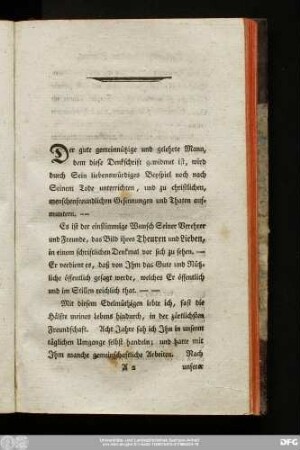 Der gute gemeinnützige und gelehrte Mann,
dem diese Denkschrift gewidmet ist, wird
durch Sein liebenswürdiges Beyspiel noch nach
Seinem Tode unterrichten, und zu christlichen,
menschenfreundlichen Gesinnungen und Thaten auf-
muntern. —
Es ist der einstimmige Wunsch Seiner Verehrer
und Freunde, das Bild ihres Theuren und Lieben,
in einem schriftlichen Denkmal vor sich zu sehen. —
Er verdient es, daß von Ihm das Gute und Nütz-
liche öffentlich gesagt werde, welches Er öffentlich
und im Stillen reichlich that. — —
Mit diesem Edelmüthigen lebte ich, fast die
Hälfte meines Lebens hindurch, in der zärtlichsten
Freundschaft. Acht Jahre sah ich Ihn in unserm
täglichen Umgange selbst handeln; und hatte mit
Ihm manche gemeinschaftliche Arbeiten. Nach
A 2 unserer
DFG